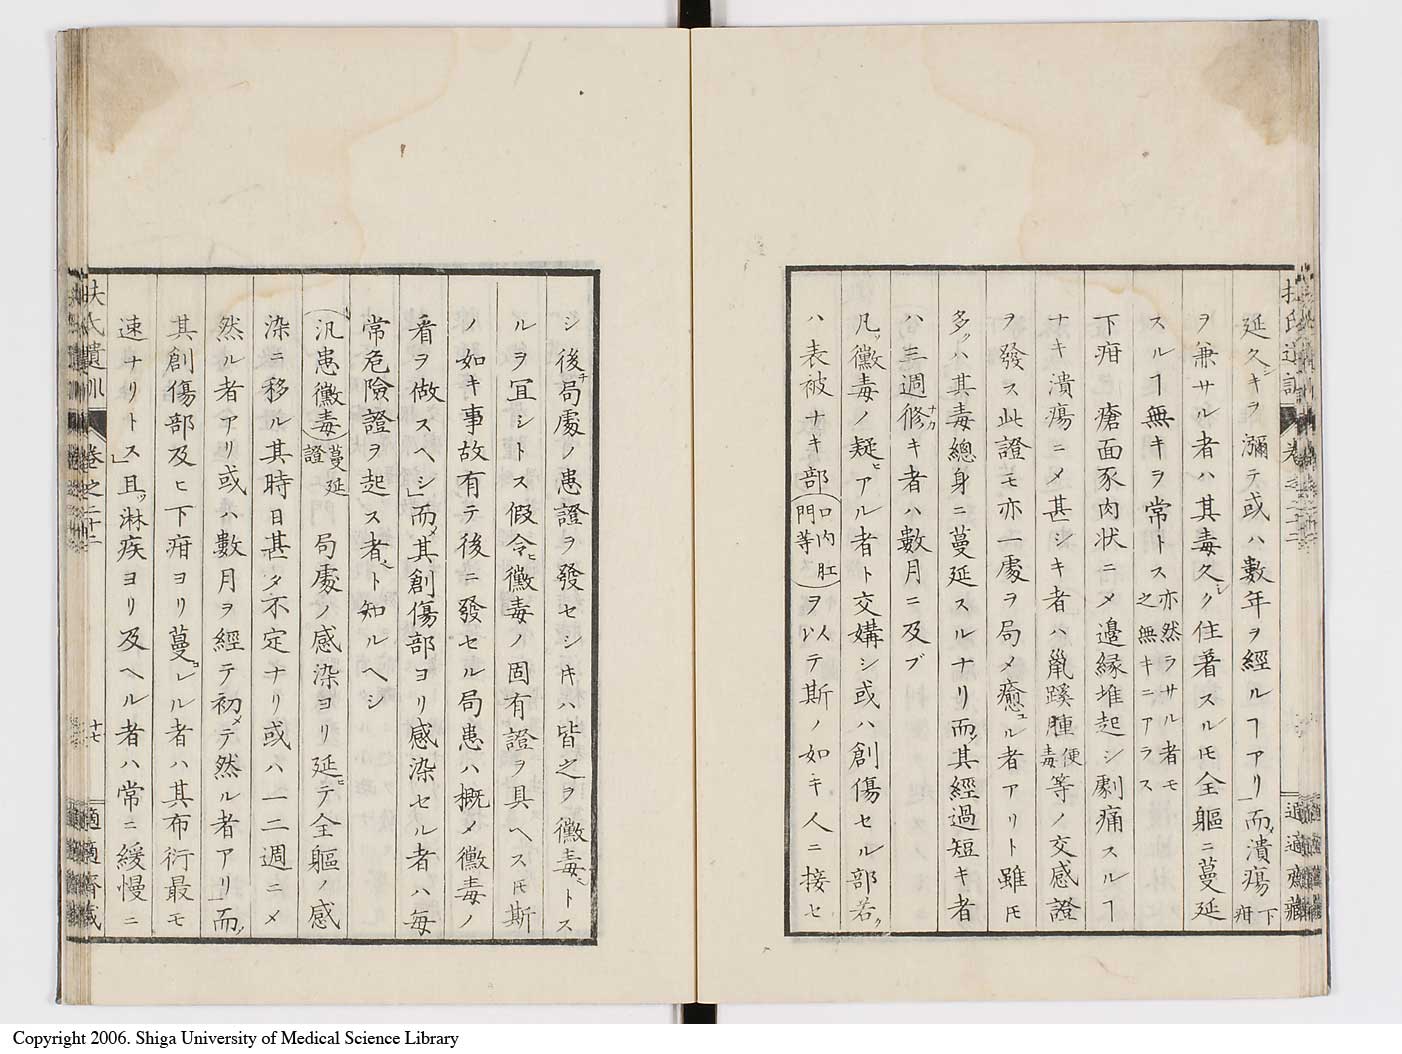 延久シキヲ瀰テ或ハ數年ヲ經ルヿアリ」而潰瘍下疳
ヲ兼サル者ハ其毒久シク住着スルモ全軀ニ蔓延
スルヿ無キヲ常トス亦然ラサル者モ之無キニアラス
下疳瘡面豕肉状ニメ邊縁堆起シ劇痛スルヿ
ナキ潰瘍ニメ甚シキ者ハ鼠蹊腫便毒等ノ交感證
ヲ發ス此證モ亦一處ヲ局メ癒ユル者アリト雖モ
多クハ其毒總身ニ蔓延スルナリ而其經過短キ者
ハ三週脩ナガキ者ハ數月ニ及ブ
凡ソ黴毒ノ疑ヒアル者ト交媾シ或ハ創傷セル部若ク
ハ表被ナキ部口内肛門等ヲ以テ斯ノ如キ人ニ接セ
扶氏遺訓 卷之二十二 適適齋藏
シ後チ局處ノ患證ヲ發セシキハ皆之ヲ黴毒トス
ルヲ冝シトス假令ヒ黴毒ノ固有證ヲ具ヘスモ斯
ノ如キ事故有テ後ニ發セル局患ハ概メ黴毒ノ
看ヲ做スヘシ」而メ其創傷部ヨリ感染セル者ハ毎
常危險證ヲ起ス者ト知ルヘシ
汎患黴毒蔓延證局處ノ感染ヨリ延ヒテ全軀ノ感
染ニ移ル其時日甚タ不定ナリ或ハ一二週ニメ
然ル者アリ或ハ數月ヲ經テ初メテ然ル者アリ」而
其創傷部及ヒ下疳ヨリ蔓コレル者ハ其布衍最モ
速ナリトス」且ツ淋疾ヨリ及ヘル者ハ常ニ緩慢ニ
扶氏遺訓 卷之二十二 十七 適適齋藏
Copyright 2006. Shiga University of Medical Science Library